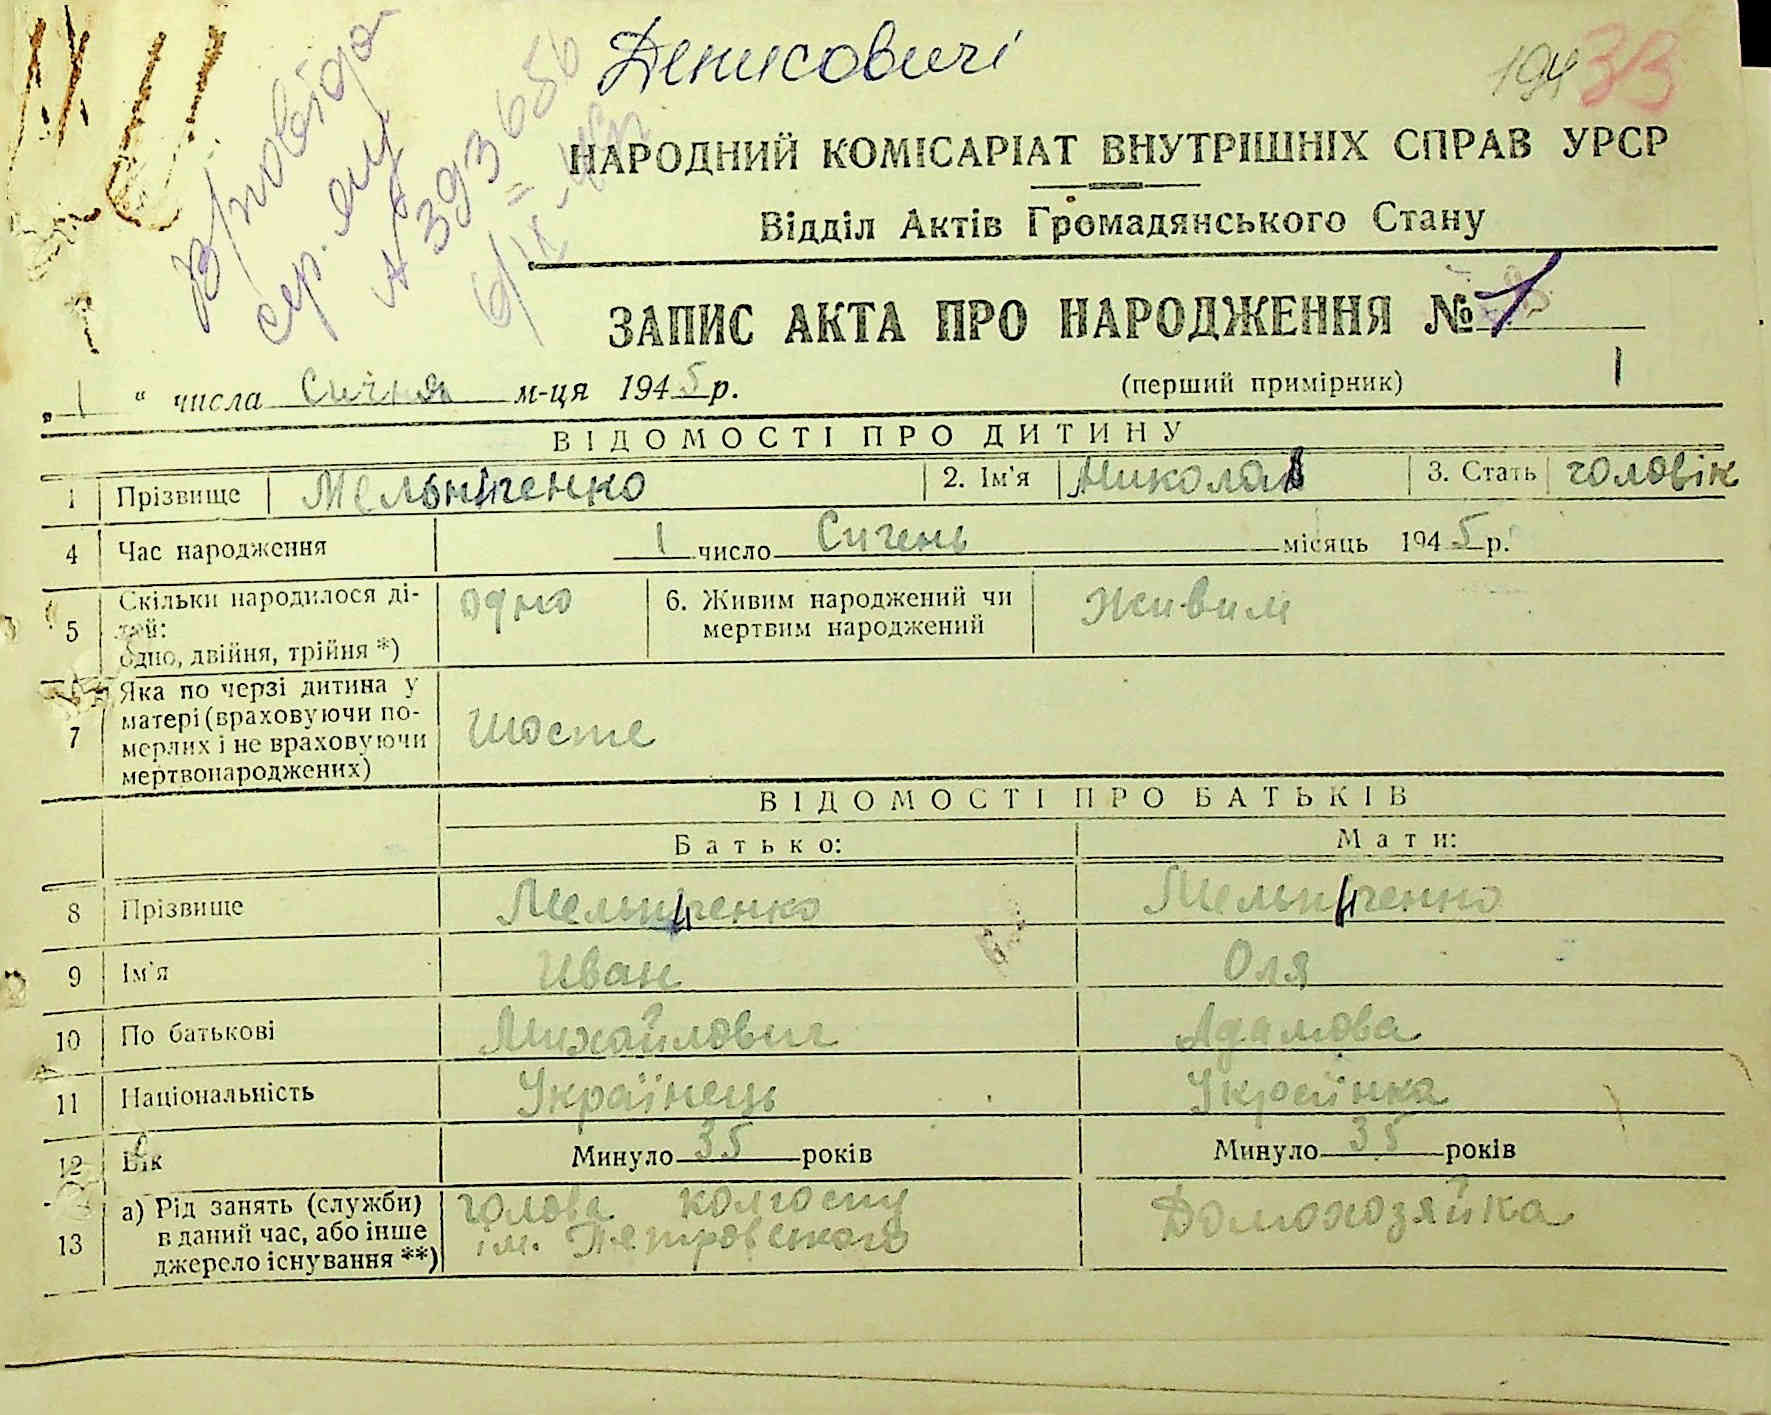 Денисовичі
194 33
В/повідо
сер. ЕЦ
№ 393656
6/IX-
НАРОДНИЙ КОМІСАРІАТ ВНУТРІШНІХ СПРАВ УРСР
Відділ Актів Громадянського Стану
ЗАПИС АКТА ПРО НАРОДЖЕННЯ № 1
„ 1 “ числа Січня м-ця 1945 р. (перший примірник) 1
ВІДОМОСТІ ПРО ДИТИНУ
1 Прізвище Мельніченко 2. Ім'я Николай 3. Стать чоловік
4 Час народження 1 число Сичень місяць 1945 р.
5 Скільки народилося ді-
тей:
одно, двійня, трійня *) одно 6. Живим народжений чи
мертвим народжений живим
7 Яка по черзі дитина у
матері (враховуючи по-
мерлих і не враховуючи
мертвонароджених) шосте
ВІДОМОСТІ ПРО БАТЬКІВ
Батько: Мати:
8 Прізвище Мельніченко Мельніченко
9 Ім'я Иван Оля
10 По батькові Михайлович Адамова
11 Національність Українець Українка
12 Вік Минуло 35 років Минуло 35 років
13 а) Рід занять (служби)
в даний час, або інше
джерело існування **) голова колгоспу
ім. Петровського Домохозяйка